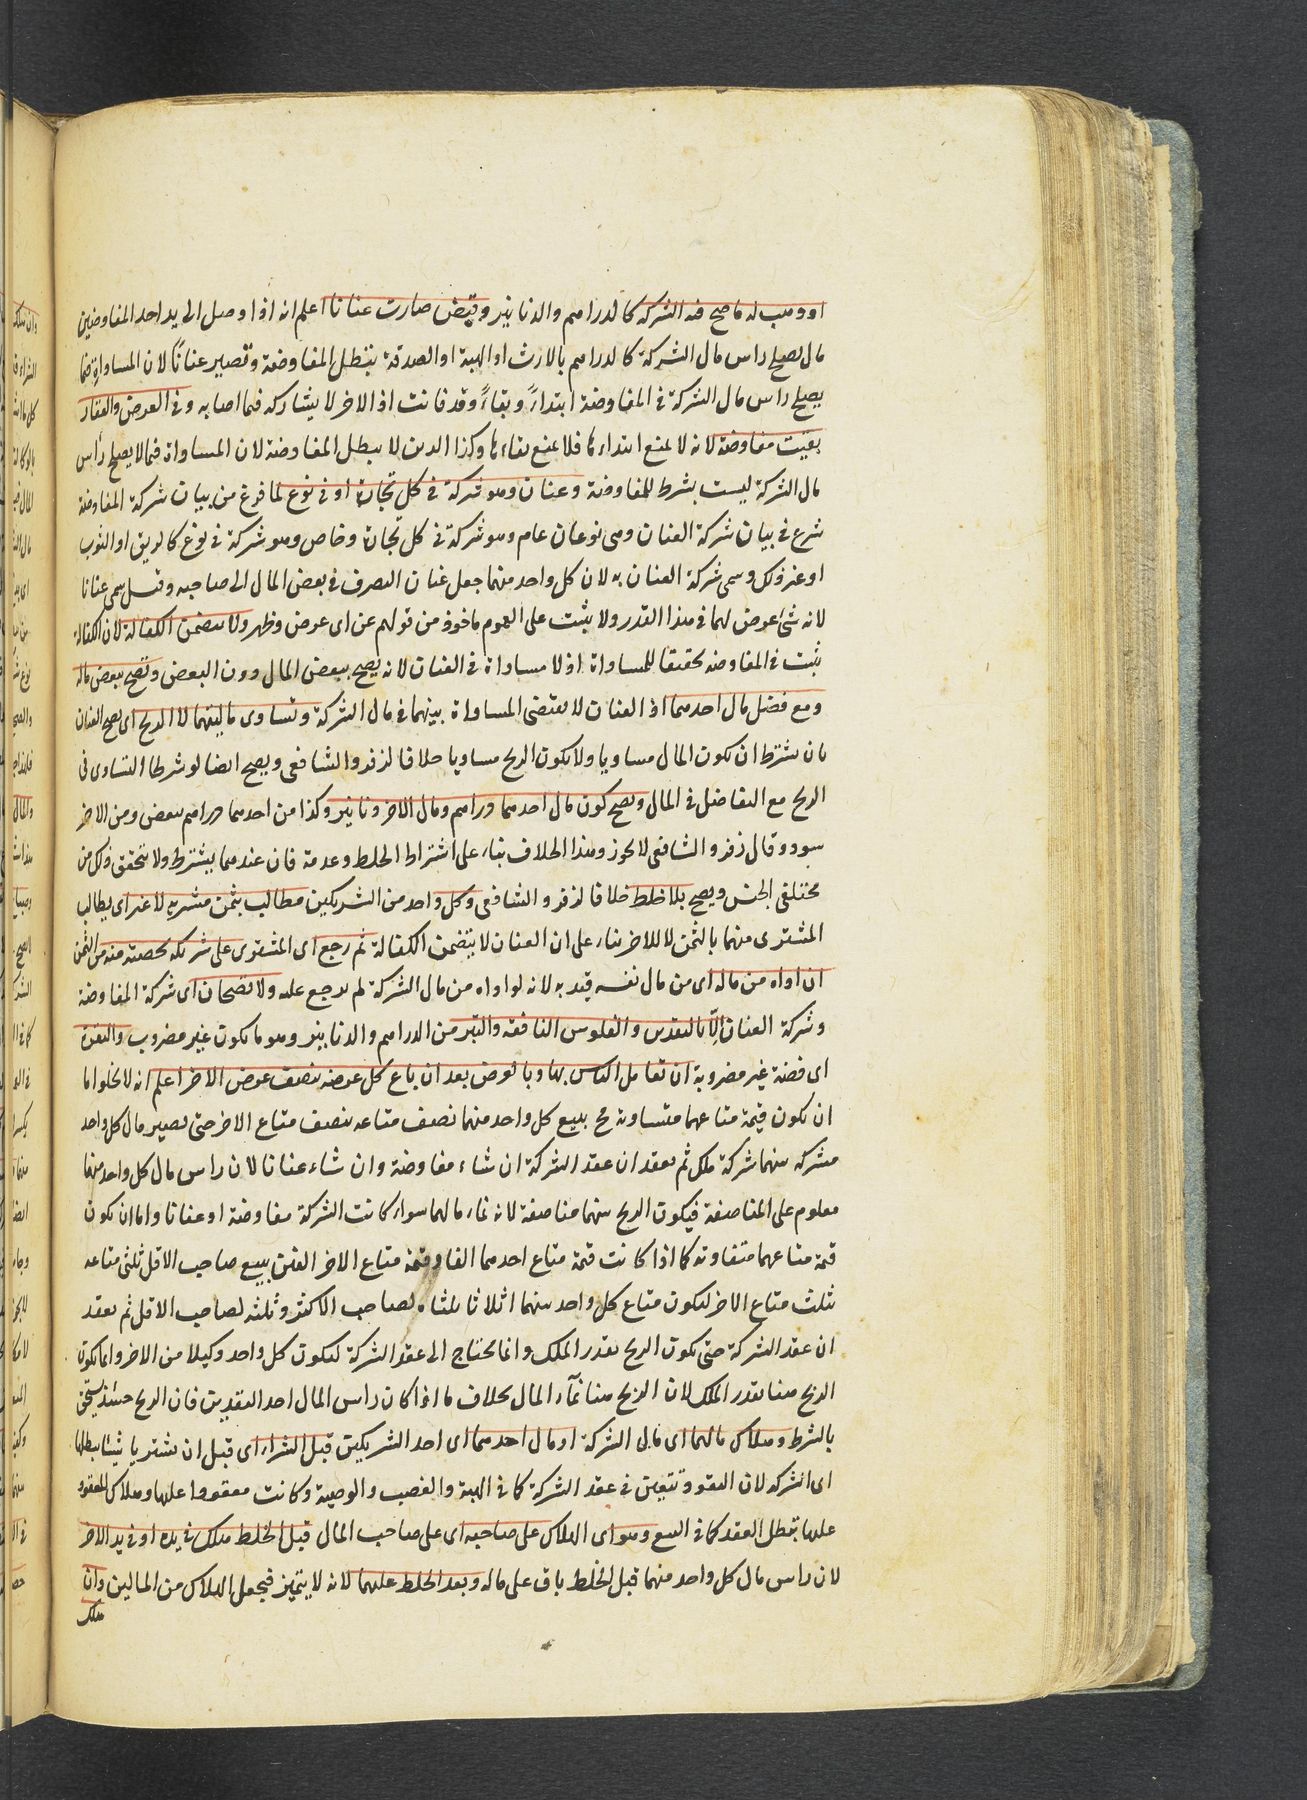 او وهب له ما صح فيه الشركة كالدراهم والدنانير وقبض صارت عنانا اعلم انه اذا وصل الى يد احد المفاوضين
مال يصلح راس مال الشركة كالدراهم بالارث او الهبة او الصدقة تبطل المفاوضة وتصير عنانًا لان المساواة فيما
يصلح راس مال الشركة في المفاوضة ابتداءً وبقاءً وقد فاتت اذ الاخر لا يشاركه فيما اصابه وفي العرض والعقار
بقيت مفاوضة لانه لا يمنع ابتداءها فلا يمنع بقاءها وكذا الدين لا يبطل المفاوضة لان المساواة فيما لا يصلح رأس
مال الشركة ليست بشرط للمفاوضة وعنان وهو شركة في كل تجارة او في نوع لما فرغ من بيان شركة المفاوضة
شرع في بيان شركة العنان وهي نوعان عام وهو شركة في كل تجارة وخاص وهو شركة في نوع كالدقيق او الثوب
او غير ذلك وسمى شركة العنان به لان كل واحد منهما جعل عنان التصرف في بعض المال الى صاحبه وقيل سمى عنانا
لانه شئ عرض لهما في هذا القدر ولا يثبت على العموم ماخوذ من قولهم عن اى عرض وظهر ولا يتضمن الكفالة لان الكفالة
يثبت في المفاوضة تحقيقا للمساواة اذ لا مساواة في العنان لانه يصح ببعض المال دون البعض وتصح ببعض ماله
ومع فضل مال احدهما اذ العنان لا يقتضى المساواة بينهما في مال الشركة وتساوى ماليتهما لا الربح اى يصح العنان
بان شترط ان يكون المال مساويا ولا يكون الربح مساويا خلافا لزفر والشافعى ويصح ايضا لو شرطا التساوى في
الربح مع التفاضل في المال ويصح كون مال احدهما دراهم ومال الاخر دنانير وكذا من احدهما دراهم بيض ومن الاخر
سود وقال زفر والشافعى لا يجوز وهذا الخلاف بناء على اشتراط الخلط وعدمه فان عندهما يشترط ولا يتحقق ذلك من
مختلفى الجنس ويصح بلا خلط خلافا لزفر والشافعى وكل واحد من الشريكين مطالب بثمن مشريه لا غير اى يطالب
المشترى منهما بالثمن لا الاخر بناء على ان العنان لا يتضمن الكفالة ثم رجع اى المشترى على شريكه بحصته منه من الثمن
ان اداه من ماله اى من مال نفسه قيد به لانه لو اداه من مال الشركة لم يرجع عليه ولا تصحان اى شركة المفاوضة
وشركة العنان الا بالنقدين والفلوس النافقة والتبر من الدراهم والدنانير وهو ما يكون غير مضروب والنقرة
اى فضة غير مضروبة ان تعامل الناس بها وبالعرض بعد ان باع كل عرضه بنصف عرض الاخر اعلم انه لا يخلو اما
ان يكون قيمة متاعهما متساوية صح ببيع كل واحد منهما نصف متاعه بنصف متاع الاخر حتى يصير مال كل واحد
مشركه بينهما شركة ملك ثم يعقدان عقد الشركة ان شاء مفاوضة وان شاء عنانا لان راس مال كل واحد منهما
معلوم على المناصفة فيكون الربح بينهما مناصفة لانه نماء مالهما سواء كانت الشركة مفاوضة او عنانا واما ان يكون
قيمة متاعهما متفاوتة كما اذا كانت قيمة متاع احدهما الفا وقيمة متاع الاخر الفين يبيع صاحب الاقل ثلثى متاعه
بثلث متاع الاخر ليكون متاع كل واحد بينهما اثلاثا ثلثاه لصاحب الاكثر وثلثه لصاحب الاقل ثم يعقد
ان عقد الشركة حتى يكون الربح بقدر الملك وانما يحتاج الى عقد الشركة ليكون كل واحد وكيلا من الاخر وانما يكون
الربح هنا بقدر الملك لان الربح هنا نمآء المال بخلاف ما اذا كان راس المال احد النقدين فان الربح حينئذ يستحق
بالشرط وهلاك مالهما اى مال الشركة او مال احدهما اى احد الشريكين قبل الشراء اى قبل ان يشتريا شيئا يبطلها
اى الشركة لان النقود تتعين في عقد الشركة كما في الهبة والغصب والوصية وكانت معقودا عليها وهلاك المعقود
عليها يبطل العقد كما في البيع وهو اى الهلاك على صاحبه اى على صاحب المال قبل الخلط هلك في يده او في يد الاخر
لان راس مال كل واحد منهما قبل الخلط باق على ماله وبعد الخلط عليهما لانه لا يتميز فيجعل الهلاك من المالين وان
هلك